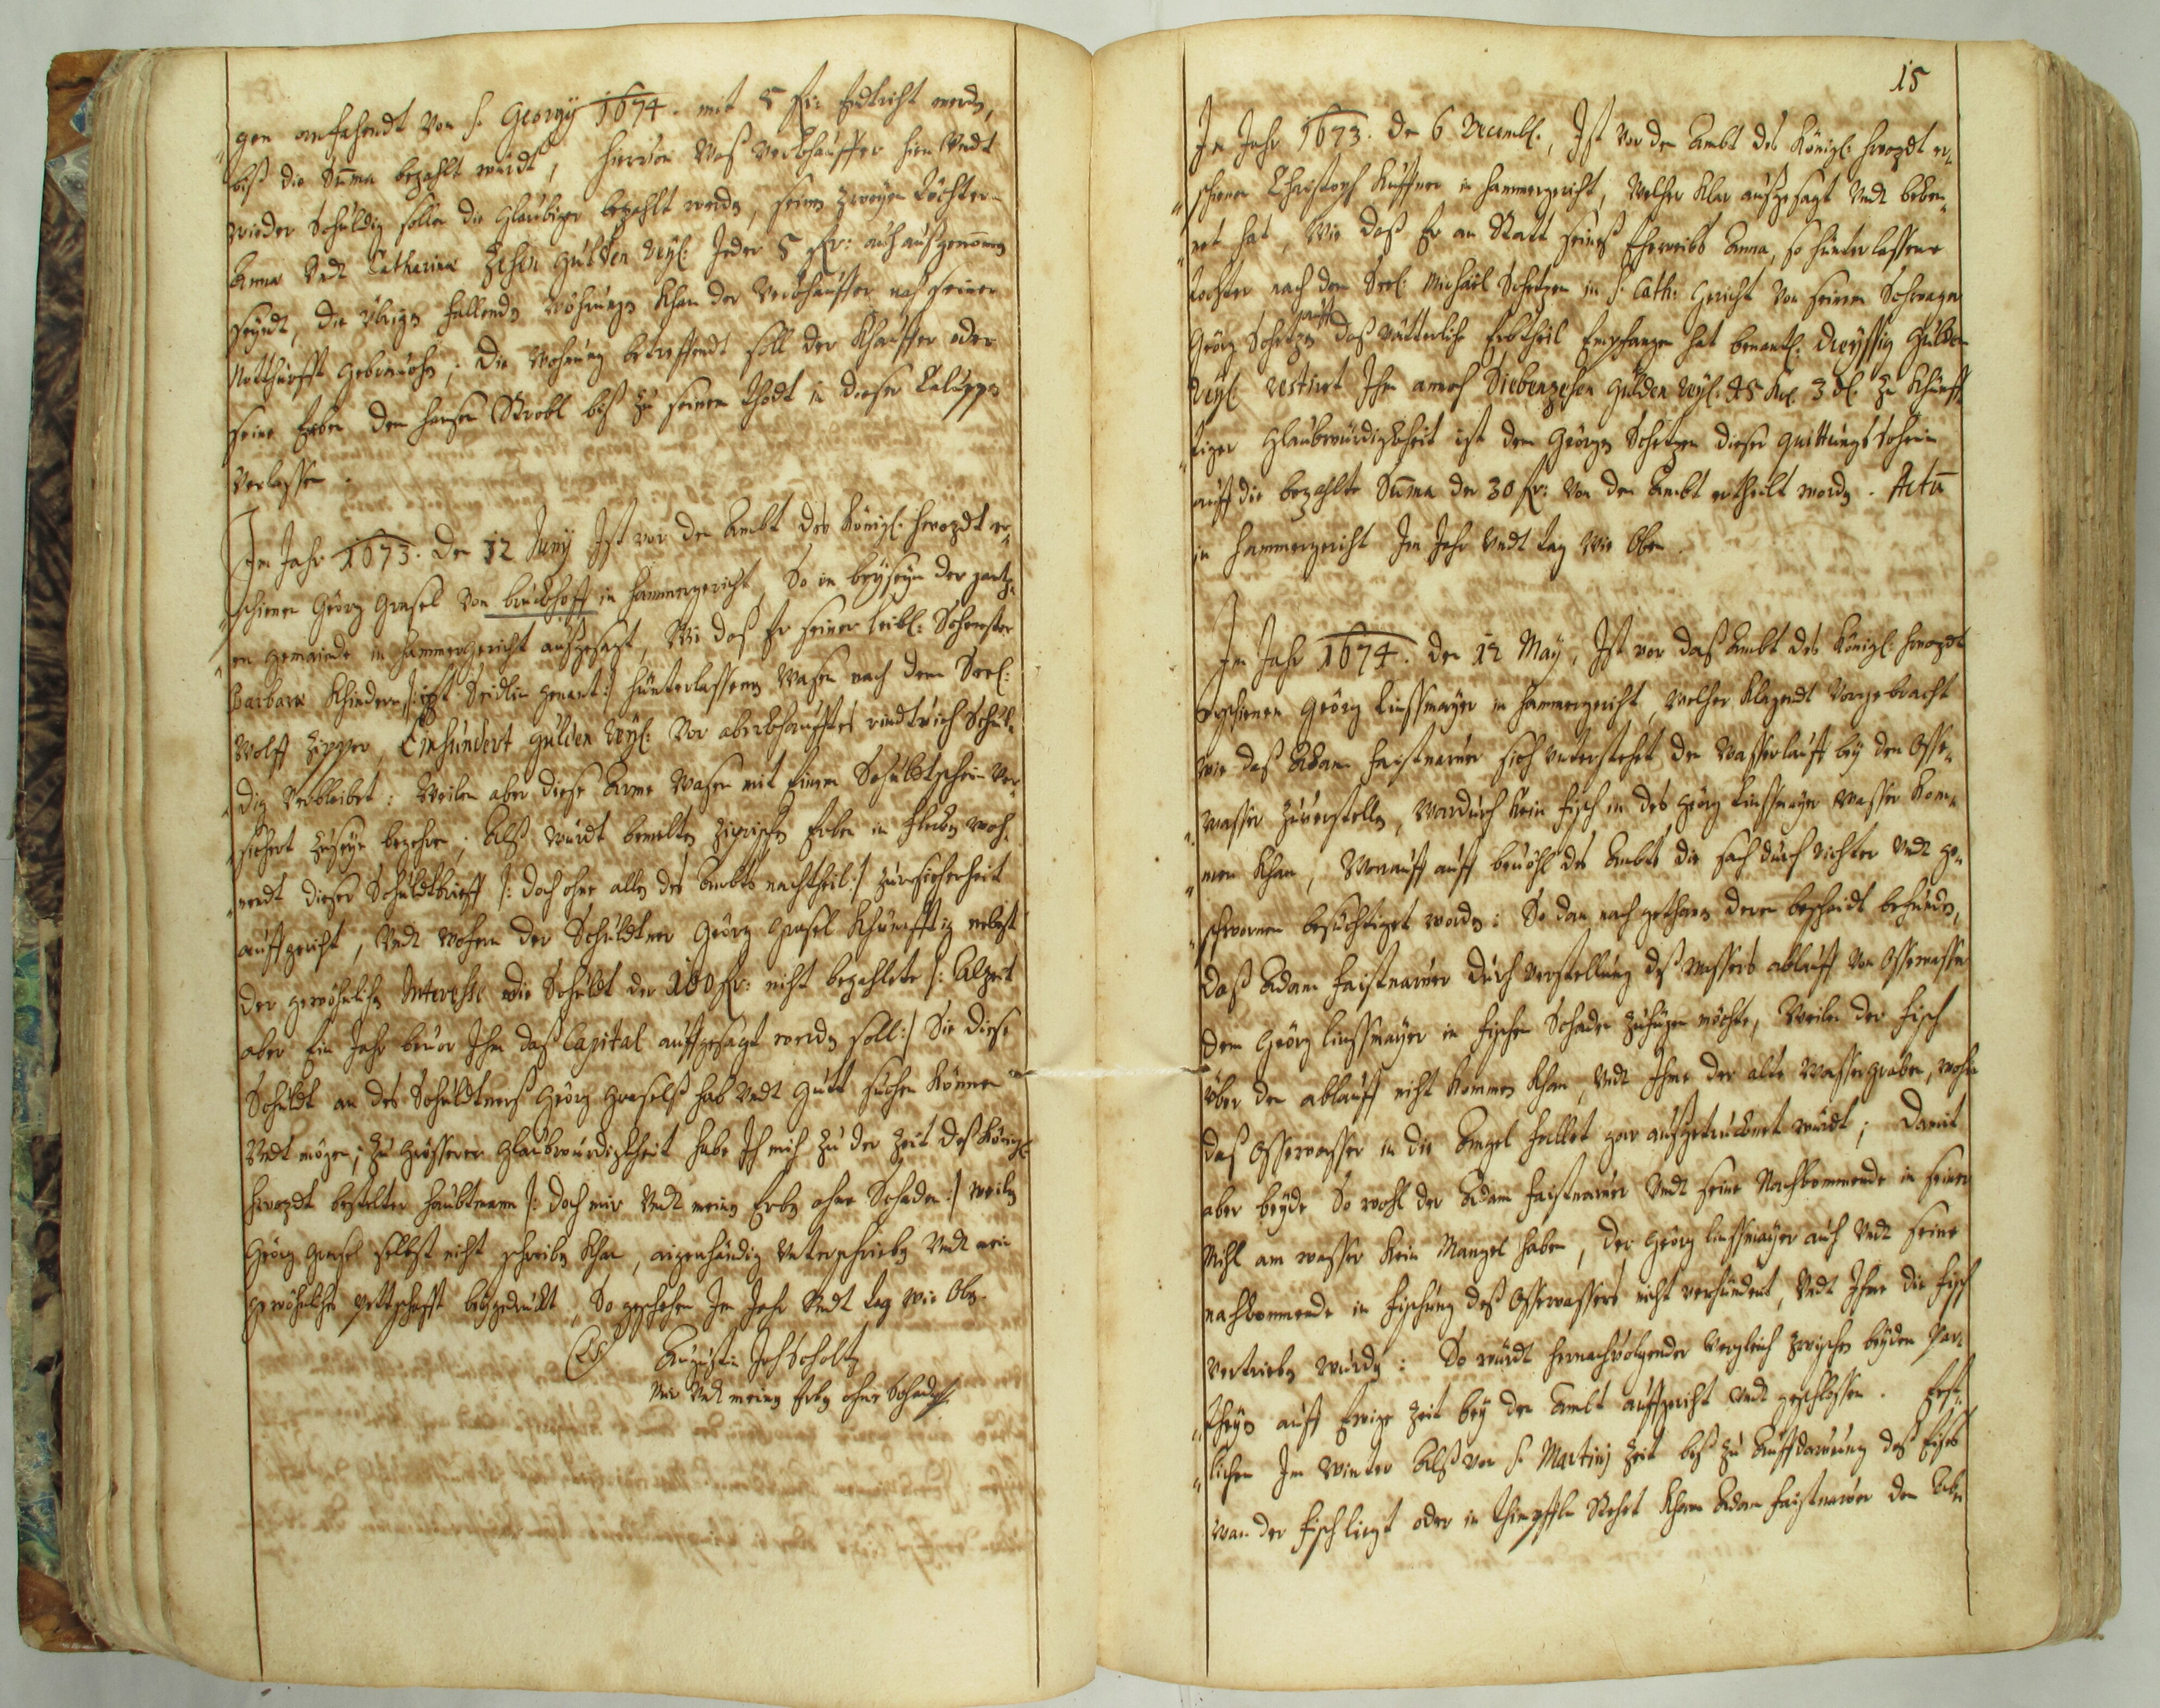 gen anfahendt von S. Georgÿ 1674. mit 5 fr: Endtricht werdn,
biß die Suma bezahlt würdt, hiervon waß Verkhauffer hin Undt
wieder schuldig sollen die Glaubiger bezahlt werdn, seinen zweyen Töchtern
Anna Undt Catharina Zehen gulden reÿ: Jeder 5 fr: auch außgenomen
seÿndt, die übrigen fallenden wöhrungen khan der Verkhauffer nach seiner
Notthurfft gebrauchen; die Wohnung betreffendt soll der Khauffer oder
seine Erben dem Hansen Strobl biß zu seinem Thodt in dieser Caluppen
Verlassen.
Im Jahr 1673. den 12 Junÿ Ist vor den Ambt des Königl: hwozdt er,
schienen Geörg Grasel Von bruckhoff in Hammergericht, So in beÿseÿn der gantz,
en gemainde in Hammergericht außgesagt, Wie daß Er seiner leibl: Schwester
Barbara Khindern /: ist Seidlin genant :/ hünterlassenen Waisen nach dem Seel:
Wolff Zipper, Einhundert gulden reÿ: Vor aberkhaufftes rindtvieh Schul,
dig Verbleibet: Weilen aber diese Arme Waisen mit Einem Schuldtschein Ver,
sichert zuseÿn begehren; Alß würdt bemelten Ziperischen Erben in woh,
nendt dieser Schuldtbrieff /: doch ohne allen des Ambts nachtheil :/ zur sicherheit
auffgericht, Undt wofern der Schuldtner Geörg Grasel Khünfftig nebst
der gewöhnlichen Interesse die Schuldt der 100 fr: nicht bezahlete /: Alzeit
aber Ein Jahr bevor Ihm daß Capital auffgesagt werdn soll :/ Sie diese
Schuldt an des Schuldtners Geörg Grasels hab Undt Gutt suchen können
Undt mögen; zu grösserer Glaubwürdigkheit habe Ich mich zu der Zeit deß Königl:
hwozdt bestelter Haubtmann /: doch mir Undt meinen Erben ohne Schaden :/ weiln
Geörg Grasel selbst nicht schreiben khan, aigenhändig Unterschrieben Undt mein
gewöhnliches pettschafft beÿgedruckt, So geschehen Im Jahr Undt tag wie Oben
(LS) Augustin
Mir Undt meinen Erben ohne Schaden.
15
Im Jahr 1673. den 6 Decembl:, Ist vor den Ambt des Königl: hwozdt er,
schienen Christoph Kuffner in Hammergericht, Welcher Klar außgesagt Undt beken,
net hat, wie daß Er an Statt seineß Eheweibs Anna, so hünterlassene
tochter nach dem Seel: Michäel Schetzen in S: Cath: Gericht Von seinem Schwager
Geörg Schetzen auff daß vätterliche Erbtheil Empfangen hat benantl: dreÿssig gulden
reÿ: restiret Ihm annoch Siebenzehen gulden reÿ: 45 Kr: 3 dl: zu khünff,
tiger Glaubwürdigkheit ist dem Geörgen Schetzen dieser quittungsschein
auff die bezahlte Suma der 30 fr: von den Ambt ertheilt worden. Actu
in Hammergericht Im Jahr Undt tag wie Oben.
Im Jahr 1674. den 12 Maÿ, Ist vor daß Ambt des Königl: hwozdt
Erschienen Geörg Linssmaÿer in Hammergericht, welcher klagendt Vorgebracht
wie daß Adam Faistnawer sich understehet den Wasserlauff beÿ den Osse,
wasser zuverstellen, Wardurch kein fisch in des Geörg Linssmaÿer wasser kom,
men khan, Worauff auff bevöhl des Ambts die sach durch richter Undt ge,
schwornen besichtiget worden: So dan nach gethanen deren bescheidt befunden,
daß Adam Faistnawer durch verstellung deß wassers ablauff von Ossewasser
dem Geörg Linssmaÿer in fischen Schaden zufügen möchte, Weilen der fisch
Über den ablauff nicht kommen khan, Undt Ihme der alte Wassergraben, woher
daß Ossewasser in die Angel fallet gar außgetrucknet würdt; damit
aber beÿde So wohl der Adam Faistnawer Undt seine Nachkommende in seiner
Mihl am wasser kein Mangel haben, der Geörg Linssmaÿer auch Undt seine
nachkommende in fischung deß Ossewassers nicht verhündert, Undt Ihme die fisch
vertrieben wurden: So würdt hernachvolgender Vergleich zwischen beÿden Par,
theÿen auff Ewige Zeit beÿ den Ambt auffgericht Undt geschlossen. Erst,
lichen Im Winter Alß von S. Martinj Zeit biß zu Auffdawung deß Eises
wan der fisch liegt oder in thimpffln stehet khan Adam Faistnawer den